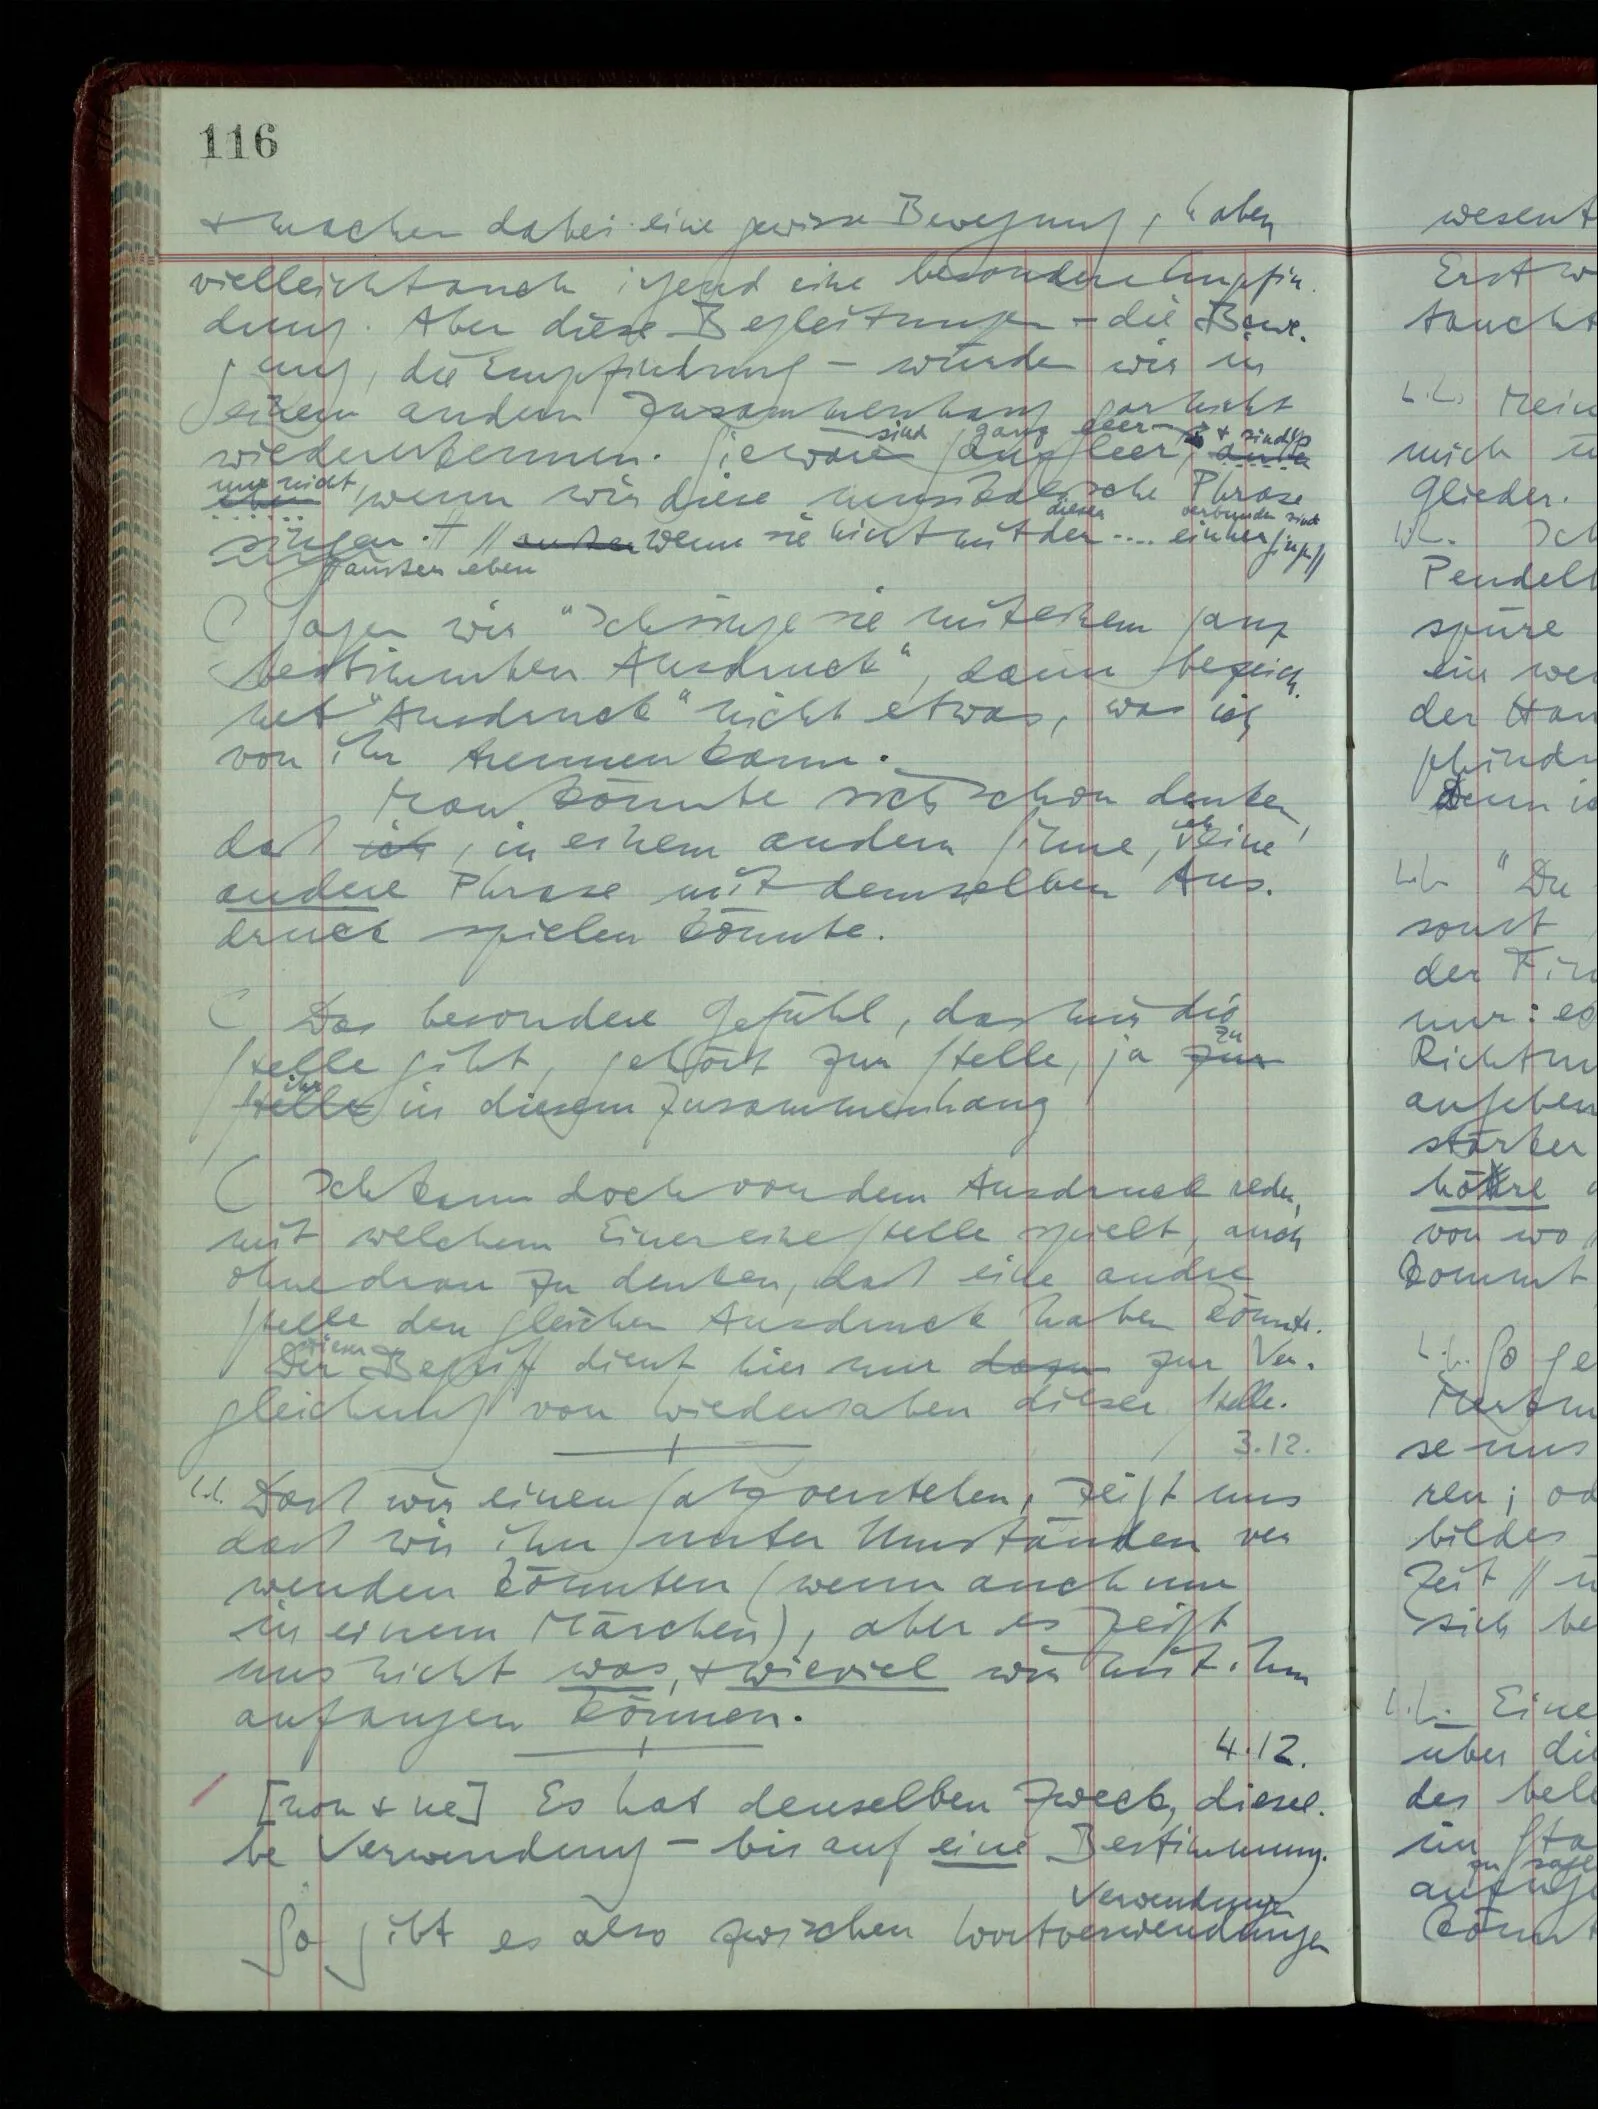 116
& machen dabei eine gewisse Bewegung, haben
vielleicht auch irgend eine besondere Empfin-
dung. Aber diese Begleitungen – die Bewe-
gung, die Empfindung – würden wir in
einem andern Zusammenhang gar nicht
wiedererkennen.
sind ganz leer & sind's
Sie wären ganz leer, außer
nur nicht,
eben wenn wir diese musikalische Phrase
dieser verbunden sind
singen. // außer wenn sie nicht mit der .... einhergingen //
außer eben
Sagen wir "Ich singe sie mit einem ganz
bestimmten Ausdruck", dann bezeich-
net "Ausdruck" nicht etwas, was ich
von ihr trennen kann.
Man könnte sich schon denken,
daß ich, in einem andern Sinne, ich eine
andere Phrase mit demselben Aus-
druck spielen könnte.
Das besondere Gefühl, das mir die
Stelle gibt, gehört zur Stelle, ja zur
zu
ihr
Stelle in diesem Zusammenhang
Ich kann doch von dem Ausdruck reden,
mit welchem Einer eine Stelle spielt, auch
ohne dran zu denken, daß eine andre
Stelle den gleichen Ausdruck haben könnte.
Dieser
Der Begriff dient hier nur dazu zur Ver-
gleichung von Wiedergaben dieser Stelle.
3.12.
Daß wir einen Satz verstehen, zeigt uns
daß wir ihn unter Umständen ver
wenden könnten (wenn auch nur
in einem Märchen), aber es zeigt
uns nicht was, & wieviel wir mit ihm
anfangen können.
4.12.
[non & ne] Es hat denselben Zweck, diesel-
be Verwendung – bis auf eine Bestimmung.
Verwendungen
So gibt es also zwischen Wortverwendungen
wesent
Erst w
taucht
Mein
mich
Glieder.
Ich
Pendelb
spüre
ein we
der Han
pfindu
Denn ic
"Du
sonst
der Fin
nur: es
Richtun
angeben
stärker
höre
von wo
kommt
So ge
Merkm
se uns
ren; od
bildes
Zeit //
sich be
Eine
über die
des bele
im Sta
zu sage
könnt